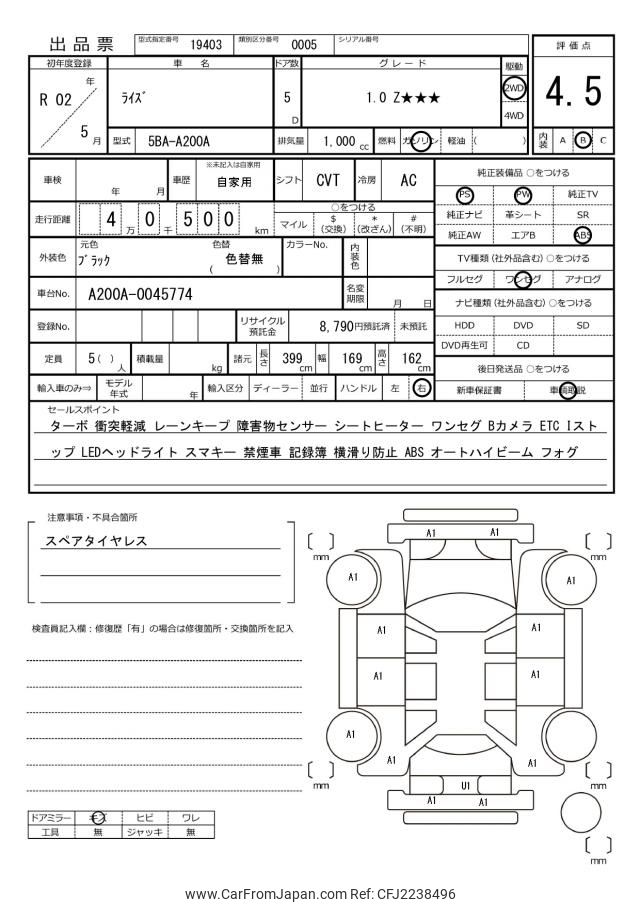 出品票
型式指定番号 19403 類別区分番号 0005 シリアル番号
評価点
4.5
内装 A B C
初年度登録 車名 ドア数 グレード 駆動
R 02 年 5 月
ライズ 5 D 1.0 Z★★★ 2WD 4WD
型式 5BA-A200A 排気量 1,000 cc 燃料 ガソリン 軽油 ( )
車検 年 月 車歴 ※未記入は自家用 自家用 シフト CVT 冷房 AC
走行距離 4 万 0 千 5 0 0 km
○をつける
マイル $ (交換) * (改ざん) # (不明)
外装色 元色 ブラック 色替 ( 色替無 ) カラーNo. 内装色
車台No. A200A-0045774 名変期限 月 日
登録No. リサイクル預託金 8,790円預託済 未預託
定員 5( ) 人 積載量 kg 諸元 長さ 399 cm 幅 169 cm 高さ 162 cm
輸入車のみ⇒ モデル年式 年 輸入区分 ディーラー 並行 ハンドル 左 右
純正装備品 ○をつける
PS PW 純正TV
純正ナビ 革シート SR
純正AW エアB ABS
TV種類(社外品含む)○をつける
フルセグ ワンセグ アナログ
ナビ種類(社外品含む)○をつける
HDD DVD SD
DVD再生可 CD
後日発送品 ○をつける
新車保証書 車輌取説
セールスポイント
ターボ 衝突軽減 レーンキープ 障害物センサー シートヒーター ワンセグ Bカメラ ETC Iスト
ップ LEDヘッドライト スマキー 禁煙車 記録簿 横滑り防止 ABS オートハイビーム フォグ
注意事項・不具合箇所
スペアタイヤレス
検査員記入欄：修復歴「有」の場合は修復箇所・交換箇所を記入
A1 A1
mm mm
A1 A1
A1 A1
A1 A1
A1 A1
A1 A1
mm mm
U1
A1 A1
mm
ドアミラー キズ ヒビ ワレ
工具 無 ジャッキ 無
www.CarFromJapan.com Ref: CFJ2238496